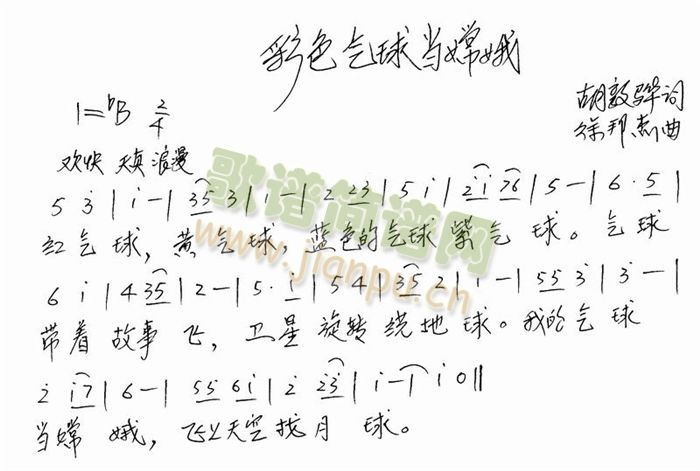 彩色气球当嫦娥
胡敦骅词
1=ᵇB 2/4
徐邦杰曲
欢快 天真 浪漫
5 3̇ | i - | 35 3 | i - | 2 23 | 5 i | 2̇i 76 | 5 - | 6 · 5 |
红气球，黄气球，蓝色的气球紫气球。气球
6 i | 4 35 | 2 - | 5 · i | 5 4 | 35 2 | i - | 55 3̇ | 3̇ - |
带着故事飞，卫星旋转绕地球。我的气球
2̇ i7 | 6 - | 55 6i | 2̇ 2̇3̇ | i - | i 0 ||
当嫦娥，飞上天空找月球。
歌谱简谱网
www.jianpu.cn